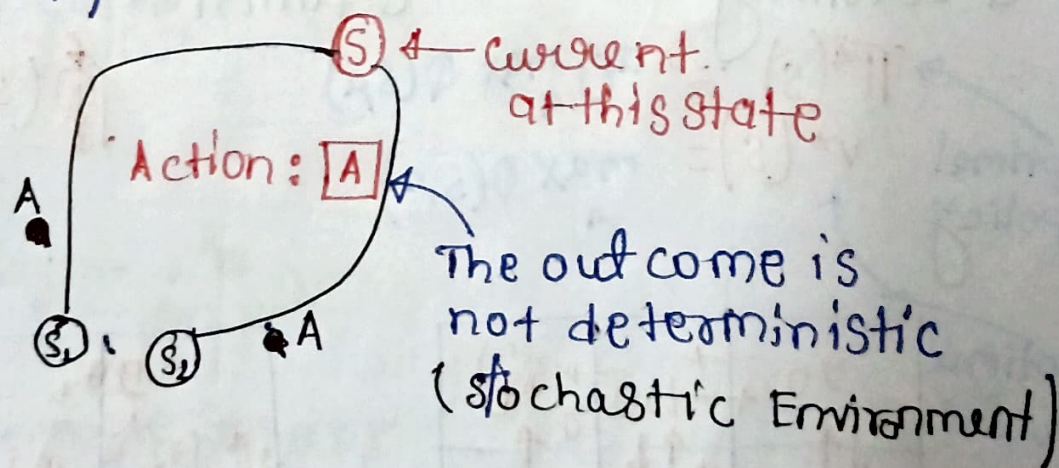 S ← Current.
at this state
Action: A
A
The outcome is
not deterministic
(stochastic Environment)
A
S₁, S₂